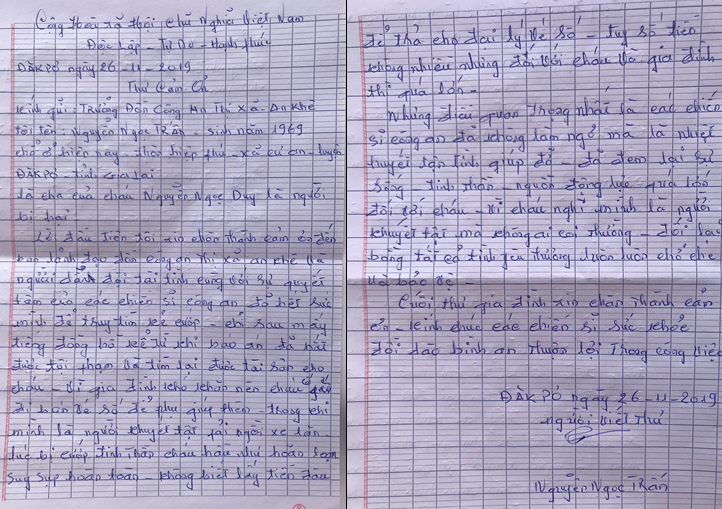 Cộng Hoà xã Hội Chủ Nghĩa Việt Nam
Độc Lập - Tự Do - Hạnh phúc
ĐĂKPƠ ngày 26-11-2019
Thư Cảm Ơn
kính gửi: Trưởng Đồn Công An Thị Xã - An Khê
tôi tên: Nguyễn Ngọc Trấn - sinh năm 1969
chỗ ở hiện nay - thôn hiệp phú - xã cư an - huyện
ĐĂKPƠ - tỉnh gia lai
là cha của cháu Nguyễn Ngọc Duy là người
bị hại
Lời đầu tiên tôi xin chân thành cảm ơn đến
ban lãnh đạo đồn công an thị xã an khê và
người đội tài tình cùng với sự quyết
tâm của các chiến sĩ công an đã hết sức
mình để truy tìm kẻ cướp - chỉ sau mấy
tiếng đồng hồ kẻ công an đã bắt
được tội phạm và tìm lại được tài sản cho
cháu - vì gia đình khó khăn nên cháu cố gắng
đi bán vé số để phụ giúp thêm - trong khi
mình là người khuyết tật phải ngồi xe lăn -
lúc bị cướp tinh thần cháu hầu như hoản loạn
suy sụp hoàn toàn - không biết lấy tiền đâu
để trả cho đại lý vé số - tuy số tiền
không nhiều nhưng đối với cháu và gia đình
thì quá lớn -
Nhưng điều quan trọng nhất là các chiến
sĩ công an đã không làm ngơ mà là nhiệt
huyết tận tình giúp đỡ - đã đem lại sự
sống - tinh thần - nguồn động lực quá lớn
đối với cháu - vì cháu nghĩ mình là người
khuyết tật mà không ai coi thường - đổi lại
bằng tất cả tình yêu thương luôn luôn chở che
và bảo vệ -
Cuối thư gia đình xin chân thành cảm
ơn - kính chúc các chiến sĩ sức khỏe
dồi dào bình an thuận lợi trong công việc
ĐĂKPƠ ngày 26-11-2019
người viết thư
Nguyễn Ngọc Trấn